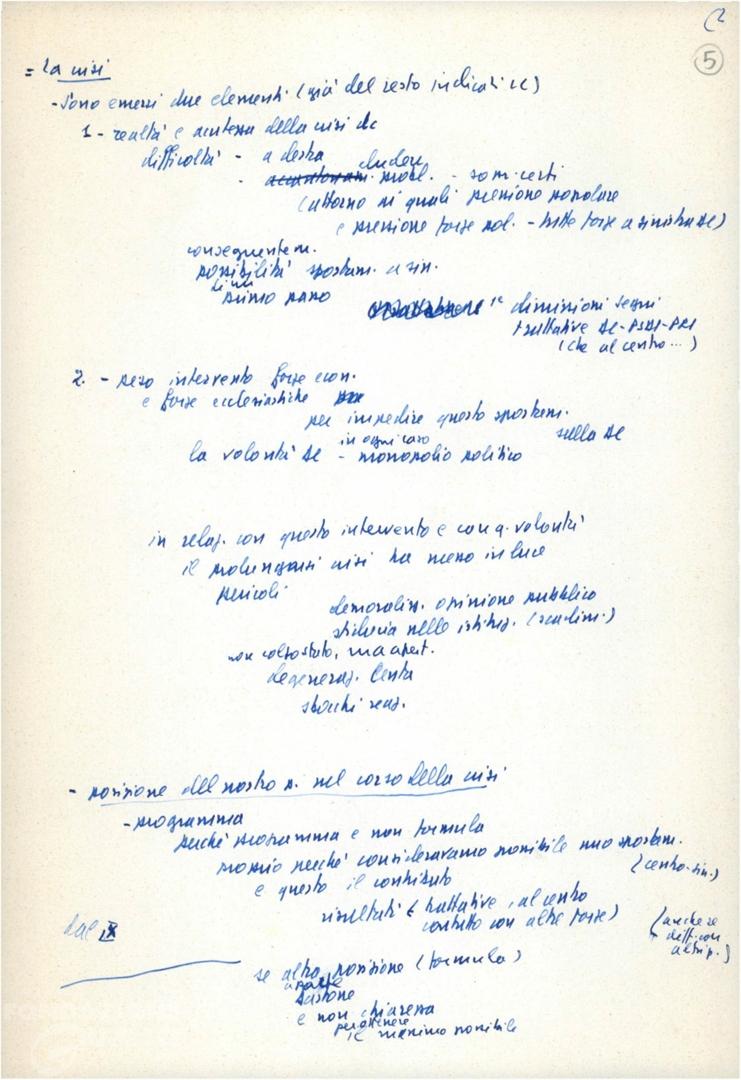 5
= La crisi
- Sono emersi due elementi (già del resto indicati CC)
1 - realtà e acutezza della crisi dc
difficoltà - a destra
- eludere probl. - sono certi
(attorno ai quali pressione popolare
e pressione forze pol. - tutte forze a sinistra DC)
conseguentem.
possibilità spostam. a sin.
primo passo
dimissioni Segni
trattative DC-PSDI-PRI
(che al centro...)
2. - peso intervento forze econ.
e forze ecclesiastiche
per impedire questo spostam.
in ogni caso
sulla DC
la volontà DC - monopolio politico
in relaz. con questo intervento e con q. volontà
il prolungarsi crisi ha messo in luce
pericoli
demoraliz. opinione pubblica
sfiducia nelle istituz.
non colpo stato, ma apert.
degeneraz. lenta
sbocchi reaz.
- posizione del nostro p. nel corso della crisi
- programma
perché programma e non formula
proprio perché consideravamo possibile nuo spostam.
(centro-sin.)
e questo il contributo
risultati (trattative, al centro
contatto con altre forze)
(anche se
diff. con
altri p.)
dal IX
se altra posizione (formula)
e non chiarezza
per ottenere
il massimo possibile